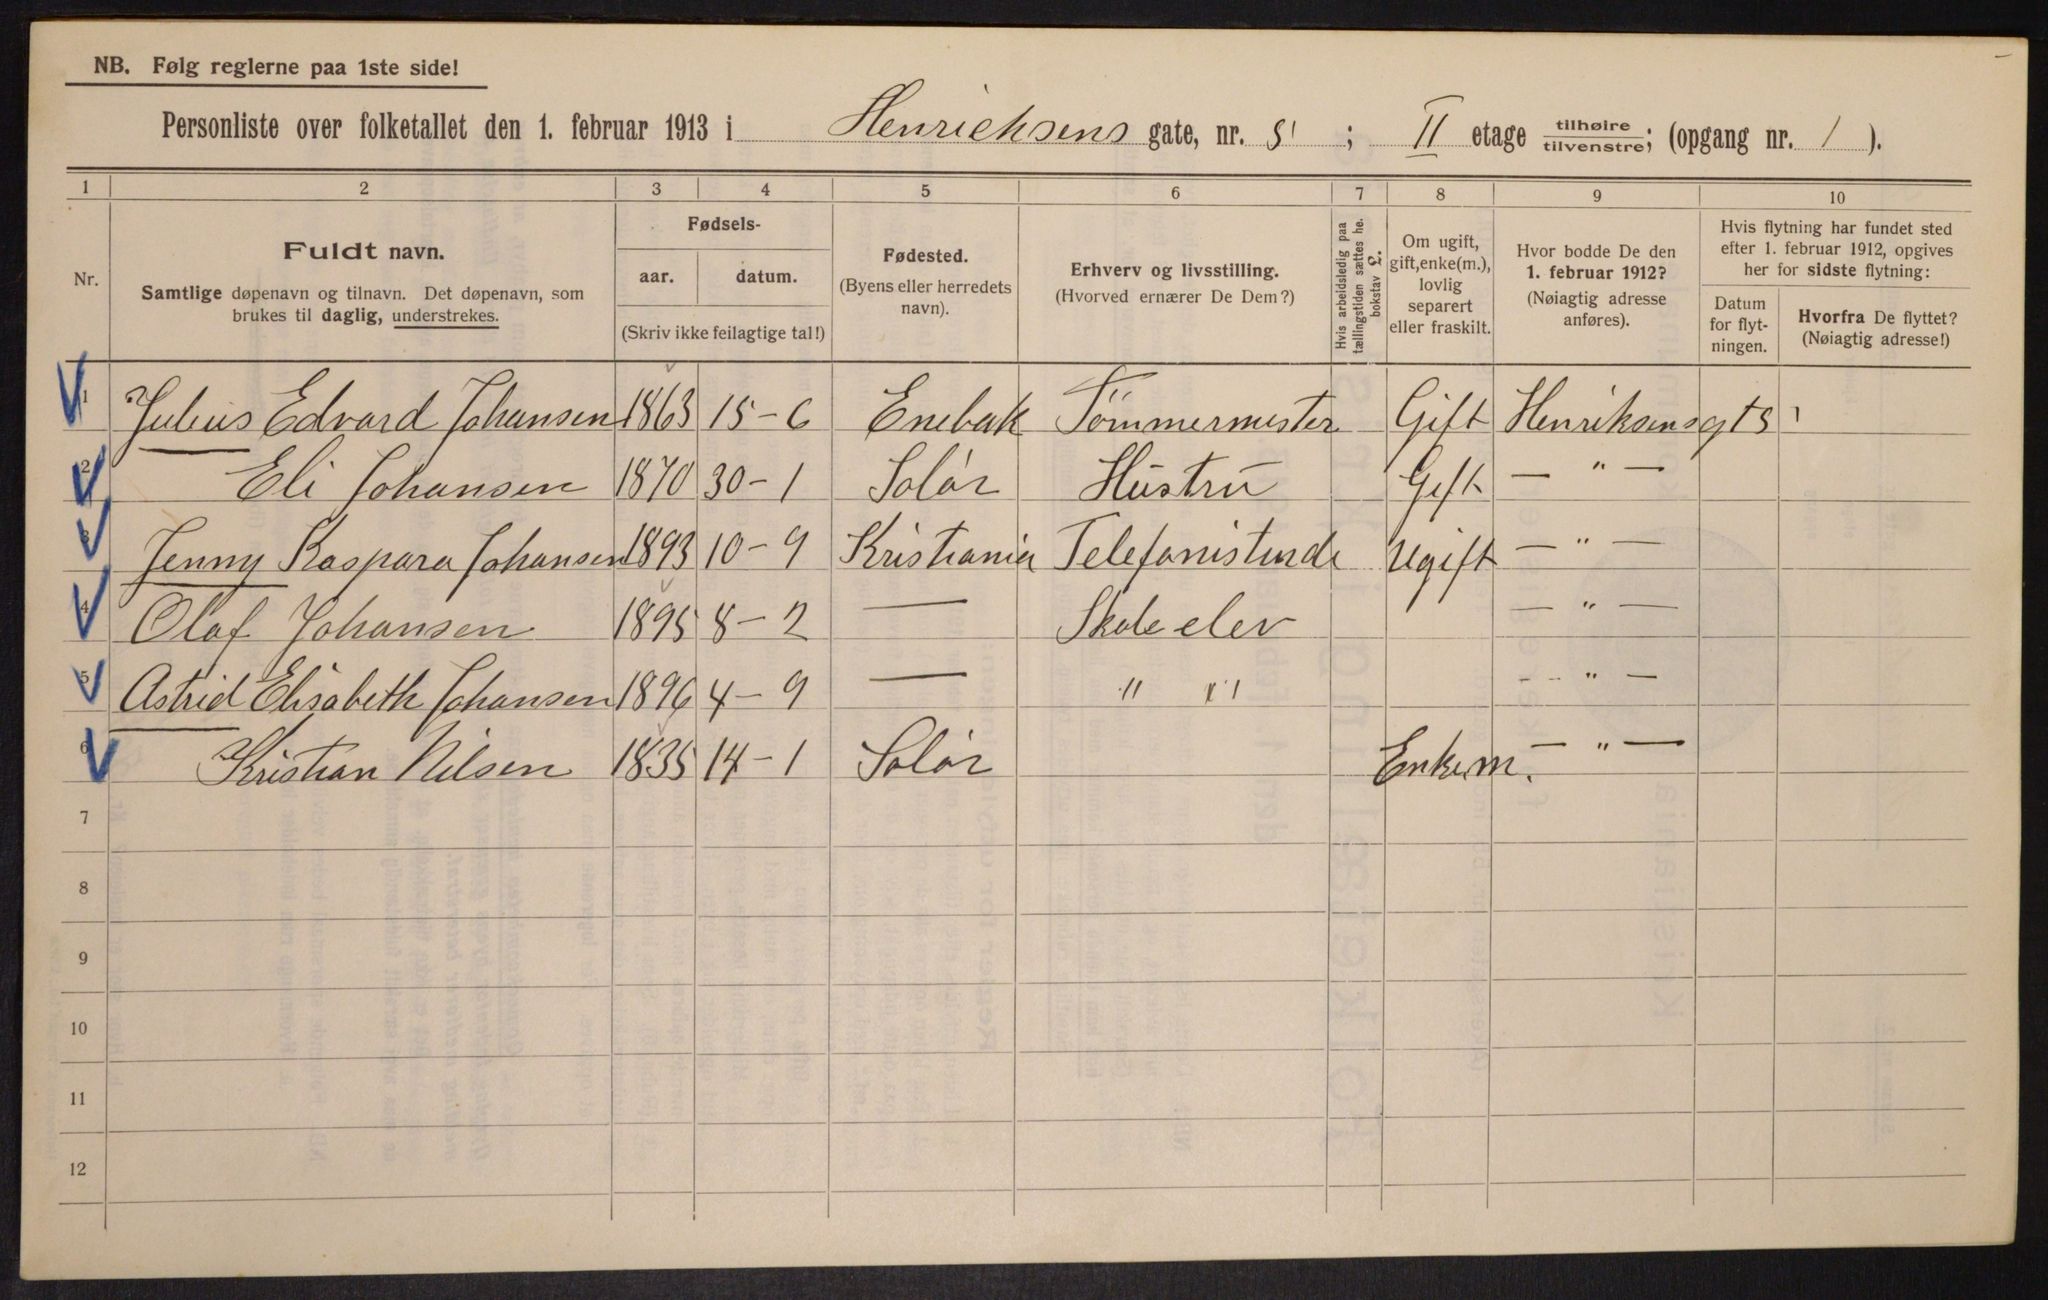 NB. Følg reglerne paa 1ste side!
Personliste over folketallet den 1. februar 1913 i Henrichsens gate, nr. 5; II etage tilhøire tilvenstre; (opgang nr. 1).
1 2 3 4 5 6 7 8 9 10
Nr.
Fuldt navn.
Samtlige døpenavn og tilnavn. Det døpenavn, som
brukes til daglig, understrekes.
Fødsels-
aar. datum.
(Skriv ikke feilagtige tal!)
Fødested.
(Byens eller herredets
navn).
Erhverv og livsstilling.
(Hvorved ernærer De Dem?)
Hvis arbeidsledig paa
tællingstiden sættes he.
bokstav L.
Om ugift,
gift, enke(m.),
lovlig
separert
eller fraskilt.
Hvor bodde De den
1. februar 1912?
(Nøiagtig adresse
anføres).
Hvis flytning har fundet sted
efter 1. februar 1912, opgives
her for sidste flytning:
Datum
for flyt-
ningen.
Hvorfra De flyttet?
(Nøiagtig adresse!)
1 Julius Edvard Johansen 1863 15-6 Enebak Tömmermester Gift Henriksensgt 5
2 Eli Johansen 1870 30-1 Solör Hustru Gift — " —
3 Jenny Kaspara Johansen 1893 10-9 Kristiania Telefonistinde Ugift — " —
4 Olaf Johansen 1895 8-2 — Skole elev — " —
5 Astrid Elisabeth Johansen 1896 4-9 — " " — " —
6 Kristian Nilsen 1835 14-1 Solör Enkem. — " —
7
8
9
10
11
12